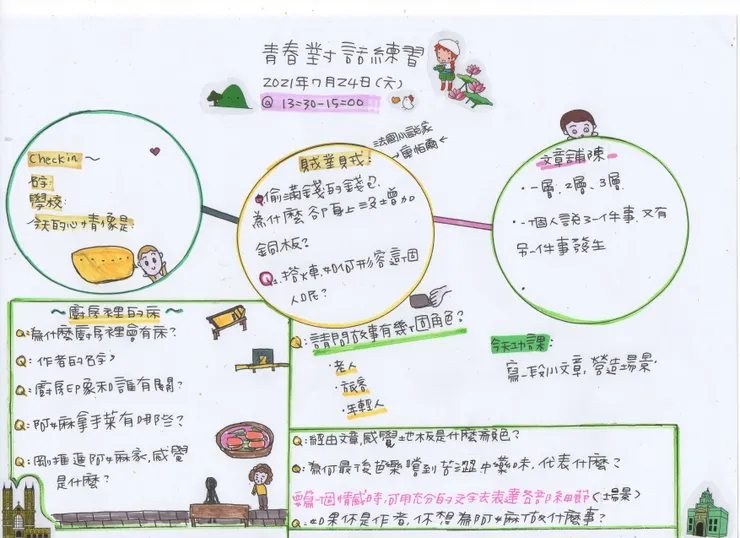 青春對話練習
2021年7月24日(六)
@ 13=30-15=00
Check in ~
名字:
學校:
今天的心情像是:
法國小說家
賊碰賊:
Q:偷滿錢的錢包
為什麼卻身上沒增加
銅板?
Q:搭火車,如何形容這個
人呢?
文章鋪陳
·一層,2層,3層
·一個人說了一件事,又有
另一件事發生
~廚房裡的床~
Q:為什麼廚房裡會有床?
Q:作者的名字?
Q:廚房印象和誰有關?
Q:阿嬤拿手菜有哪些?
Q:剛推進阿嬤家,感覺
是什麼?
Q:請問故事有幾個角色?
·老人
·旅客
·年輕人
今天功課:
寫一段小文章,營造場景.
Q:經由文章,感覺地板是什麼顏色?
Q:為何最後芭樂嚐到苦澀中藥味,代表什麼?
要寫一個情感時,可用充分的文字去表達各部細節(場景)
Q:如果你是作者,你想為阿嬤做什麼事?